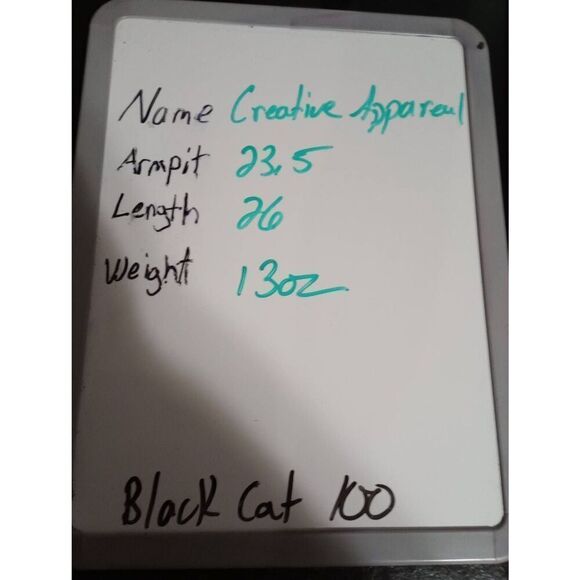 Name Creative Apparel
Armpit 23.5
Length 26
Weight 13oz
Black Cat 100